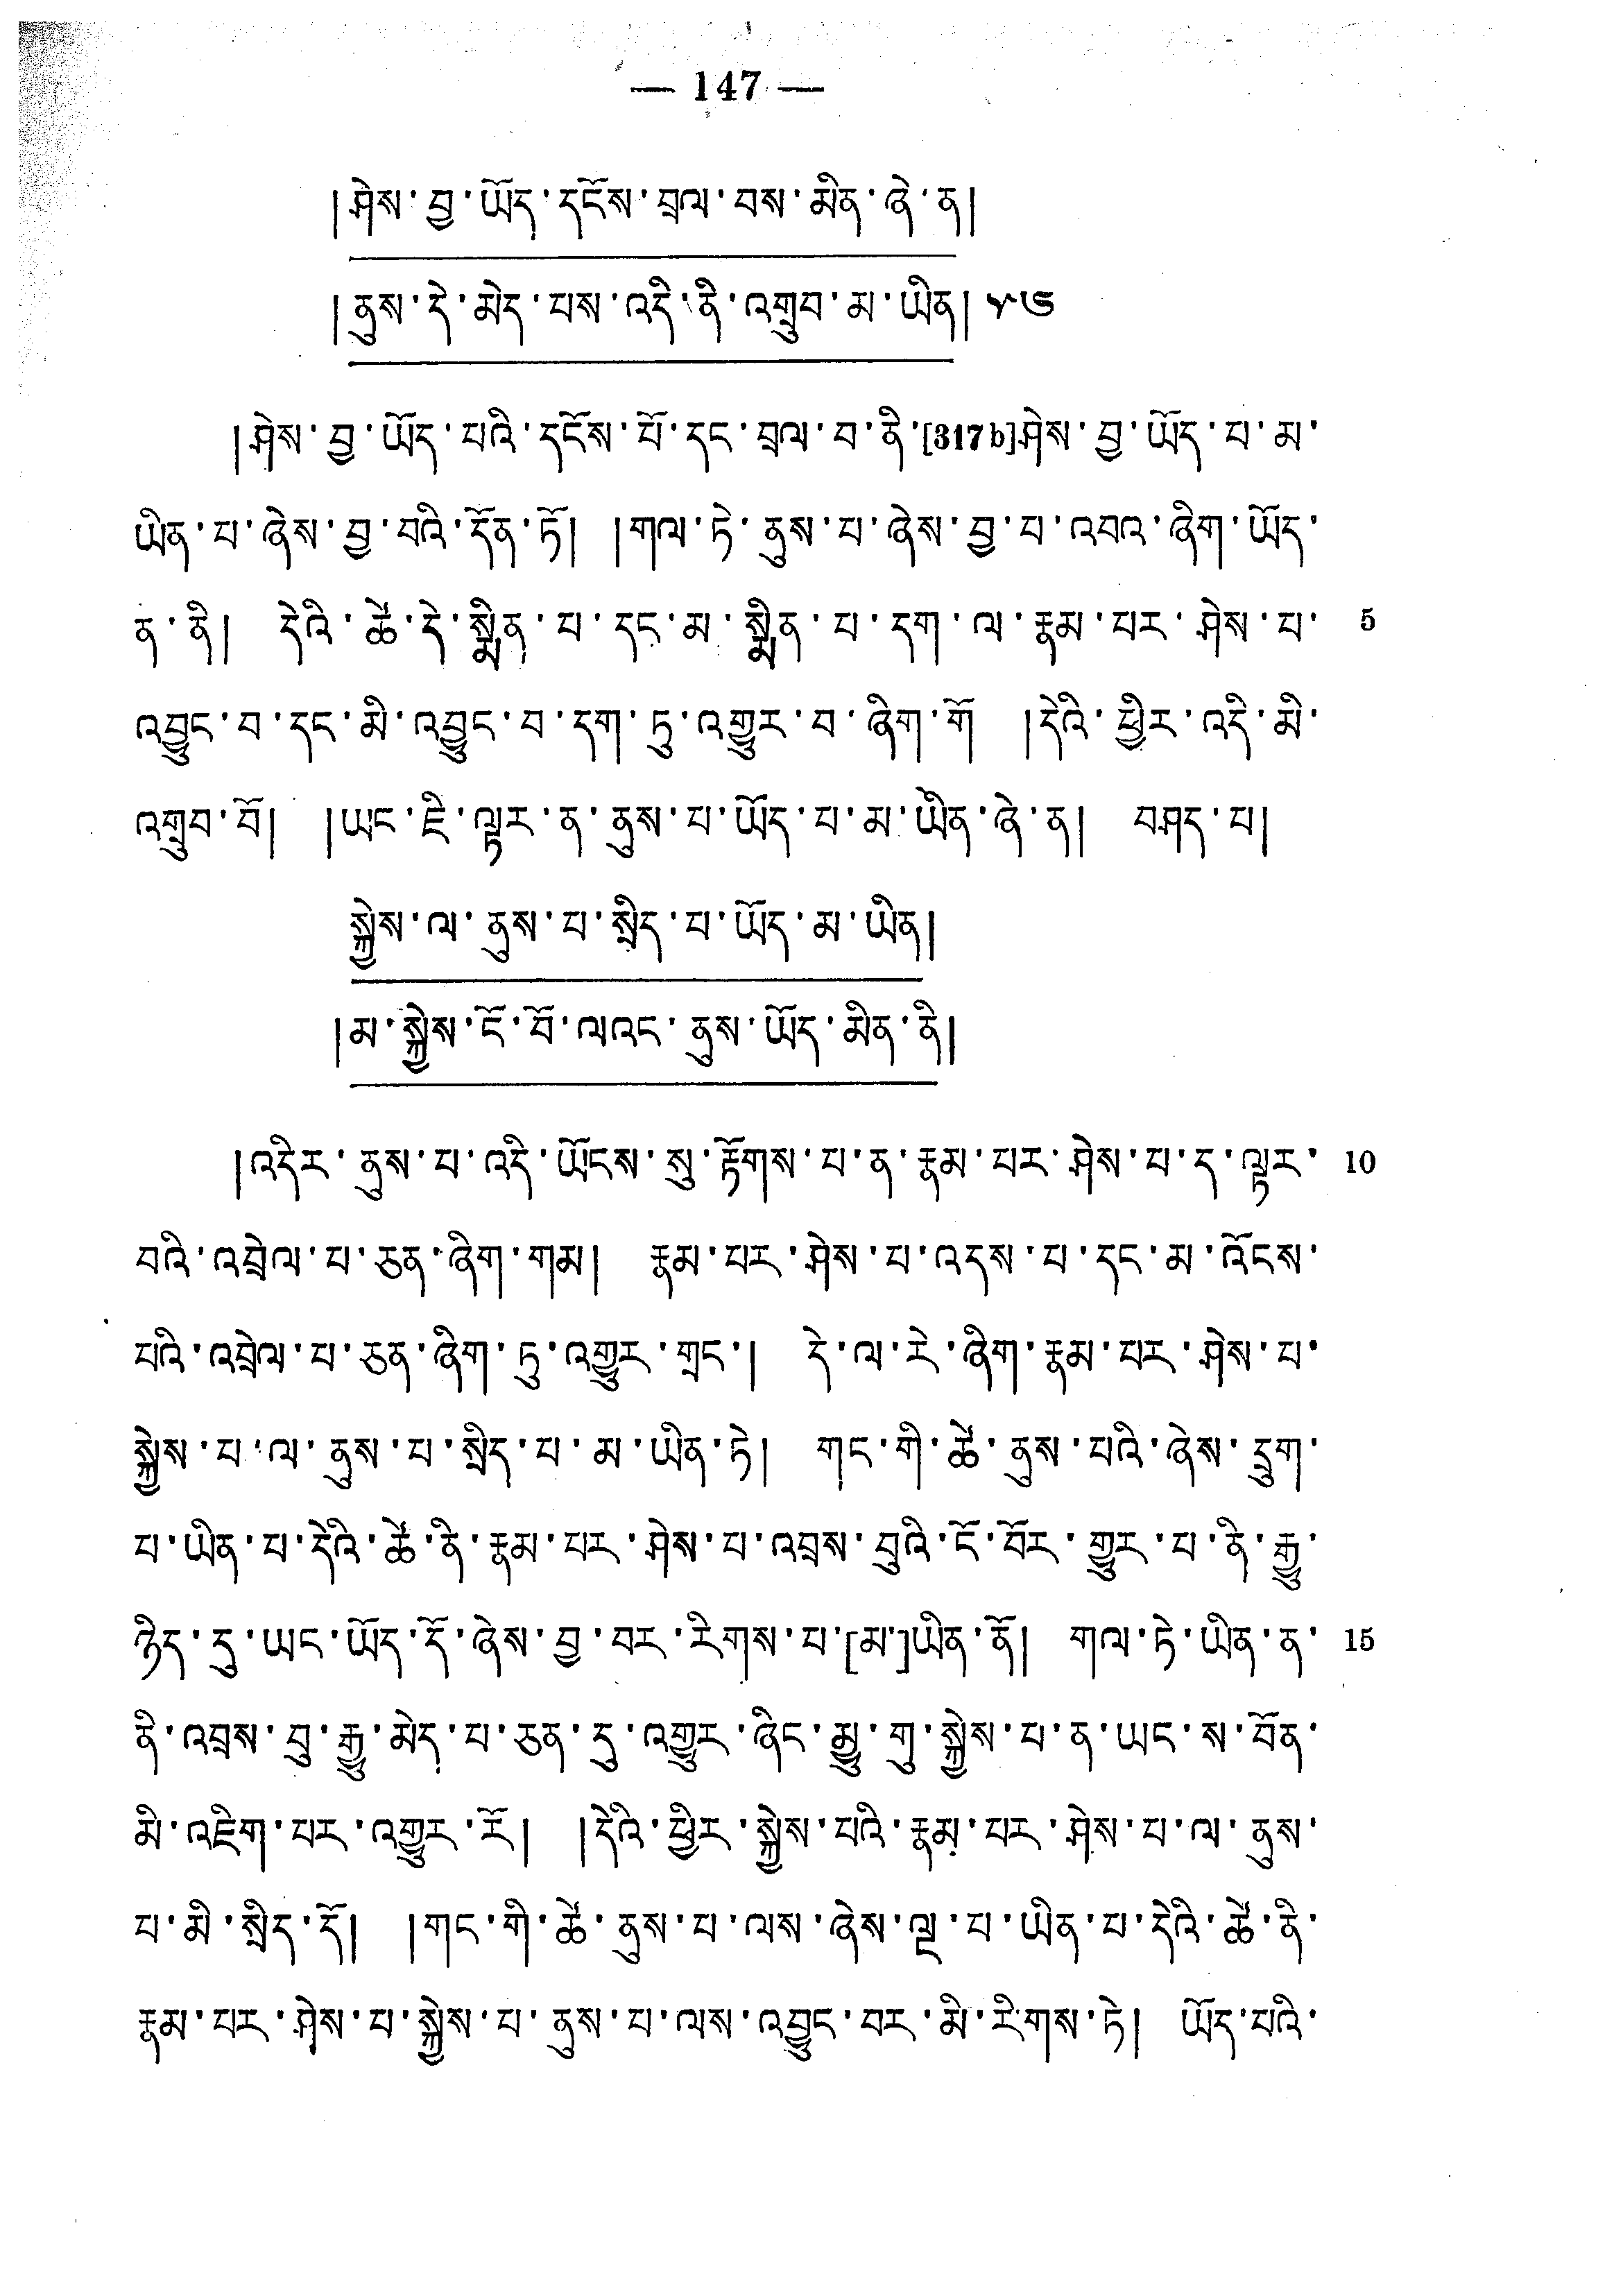 — 147 —
།ཤེས་བྱ་ཡོད་དངོས་བྲལ་བས་མིན་ཞེ་ན།
།ནུས་དེ་མེད་པས་འདི་ནི་འགྲུབ་མ་ཡིན། ༥༧
།ཤེས་བྱ་ཡོད་པའི་དངོས་པོ་དང་བྲལ་བ་ནི་[317b]ཤེས་བྱ་ཡོད་པ་མ་
ཡིན་པ་ཞེས་བྱ་བའི་དོན་ཏོ། །གལ་ཏེ་ནུས་པ་ཞེས་བྱ་པ་འབའ་ཞིག་ཡོད་
ན་ནི། དེའི་ཚེ་དེ་སྨིན་པ་དང་མ་སྨིན་པ་དག་ལ་རྣམ་པར་ཤེས་པ་ 5
འབྱུང་བ་དང་མི་འབྱུང་བ་དག་ཏུ་འགྱུར་བ་ཞིག་གོ །དེའི་ཕྱིར་འདི་མི་
འགྲུབ་བོ། །ཡང་ཇི་ལྟར་ན་ནུས་པ་ཡོད་པ་མ་ཡིན་ཞེ་ན། བཤད་པ།
སྐྱེས་ལ་ནུས་པ་སྲིད་པ་ཡོད་མ་ཡིན།
།མ་སྐྱེས་ངོ་བོ་ལའང་ནུས་ཡོད་མིན་ནི།
།འདིར་ནུས་པ་འདི་ཡོངས་སུ་རྟོགས་པ་ན་རྣམ་པར་ཤེས་པ་ད་ལྟར་ 10
བའི་འབྲེལ་པ་ཅན་ཞིག་གམ། རྣམ་པར་ཤེས་པ་འདས་པ་དང་མ་འོངས་
པའི་འབྲེལ་པ་ཅན་ཞིག་ཏུ་འགྱུར་གྲང་། དེ་ལ་རེ་ཞིག་རྣམ་པར་ཤེས་པ་
སྐྱེས་པ་ལ་ནུས་པ་སྲིད་པ་མ་ཡིན་ཏེ། གང་གི་ཚེ་ནུས་པའི་ཞེས་དྲུག་
པ་ཡིན་པ་དེའི་ཚེ་ནི་རྣམ་པར་ཤེས་པ་འབྲས་བུའི་ངོ་བོར་གྱུར་པ་ནི་རྒྱུ་
ཉིད་དུ་ཡང་ཡོད་དོ་ཞེས་བྱ་བར་རིགས་པ་[མ་]ཡིན་ནོ། གལ་ཏེ་ཡིན་ན་ 15
ནི་འབྲས་བུ་རྒྱུ་མེད་པ་ཅན་དུ་འགྱུར་ཞིང་མྱུ་གུ་སྐྱེས་པ་ན་ཡང་ས་བོན་
མི་འཇིག་པར་འགྱུར་རོ། །དེའི་ཕྱིར་སྐྱེས་པའི་རྣམ་པར་ཤེས་པ་ལ་ནུས་
པ་མི་སྲིད་དོ། །གང་གི་ཚེ་ནུས་པ་ལས་ཞེས་ལྔ་པ་ཡིན་པ་དེའི་ཚེ་ནི་
རྣམ་པར་ཤེས་པ་སྐྱེས་པ་ནུས་པ་ལས་འབྱུང་བར་མི་རིགས་ཏེ། ཡོད་པའི་